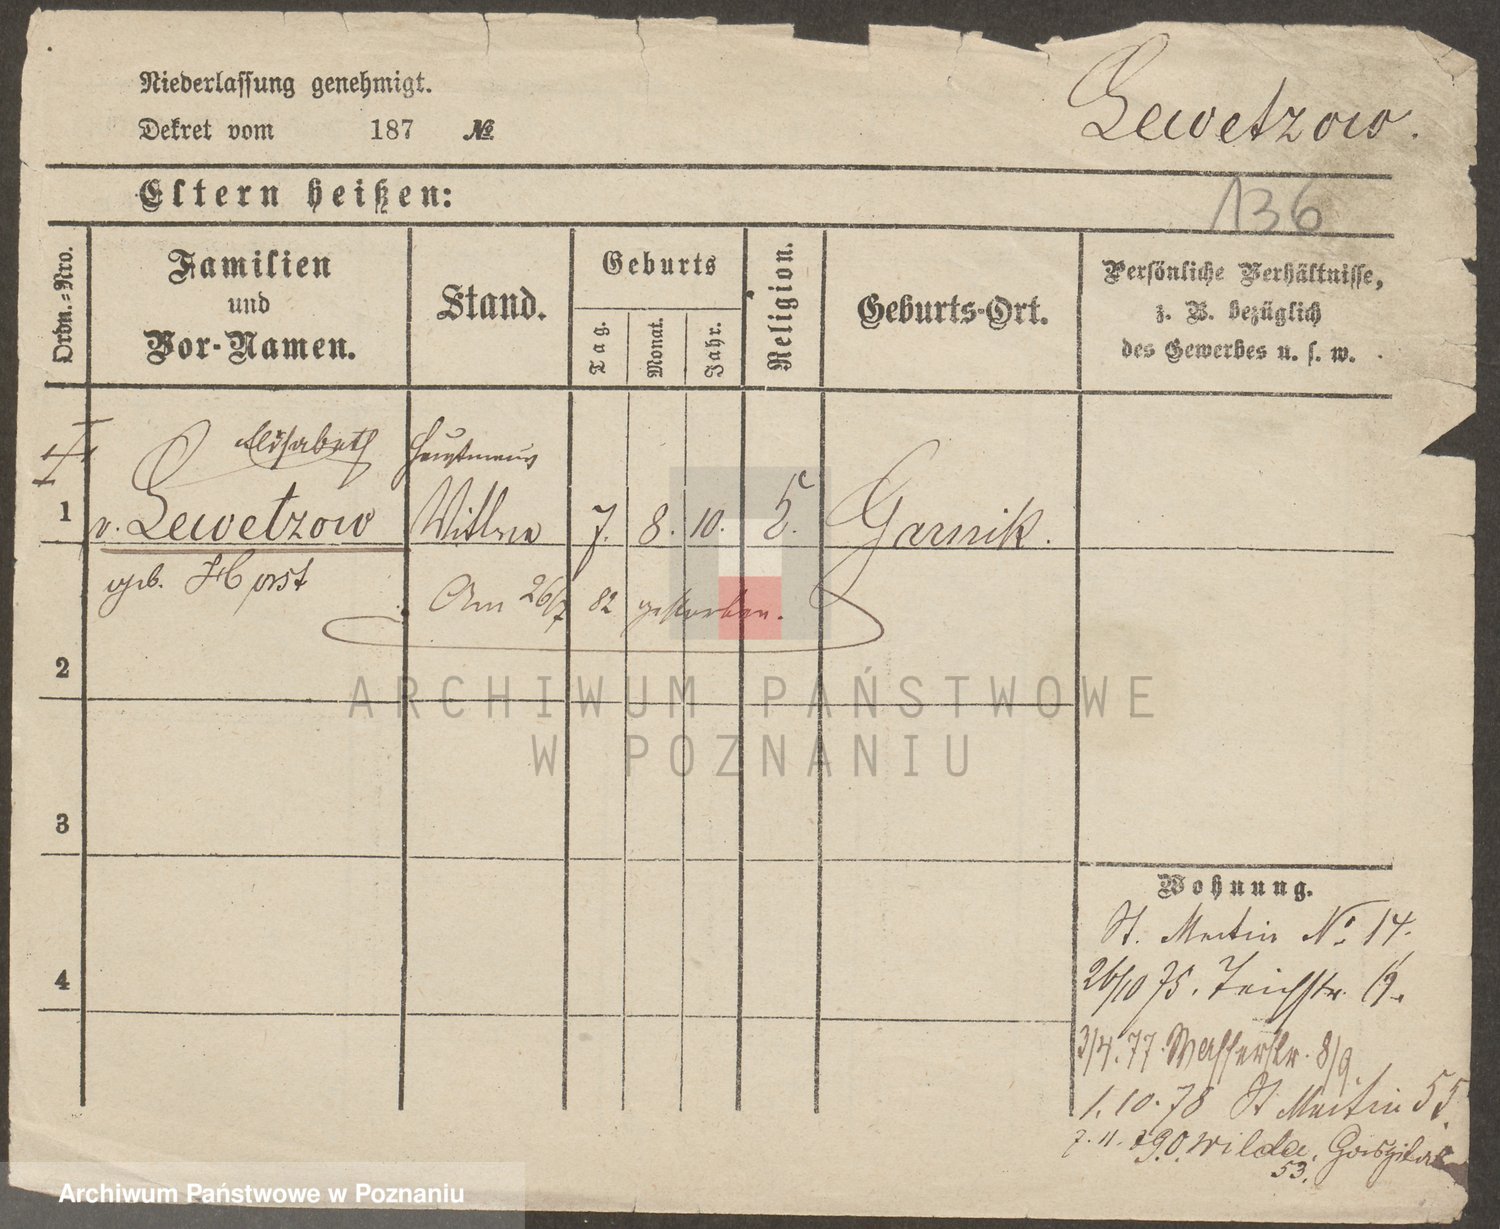 Niederlassung genehmigt.
Dekret vom 187 №
Lewetzow.
Eltern heißen:
136
Ordn.-Nro.
Familien
und
Vor-Namen.
Stand.
Geburts
Tag.
Monat.
Jahr.
Religion.
Geburts-Ort.
Persönliche Verhältnisse,
z. B. bezüglich
des Gewerbes u. s. w.
Elisabeth Hauptmanns
1 v. Lewetzow Wittwe 7. 8. 10. Garnik.
geb. Horst
Am 26/7 82 gestorben.
2
ARCHIWUM PAŃSTWOWE
W POZNANIU
3
4
Wohnung.
St. Martin No. 14.
26/10 75. Teichstr.
3/4. 77. Wasserstr. 8/9.
1. 10. 78 St Martin 55.
7. 11. 79 O. Wilda,
53.
Archiwum Państwowe w Poznaniu